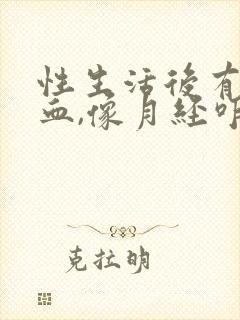 性生活後有
血,像月経
克拉明